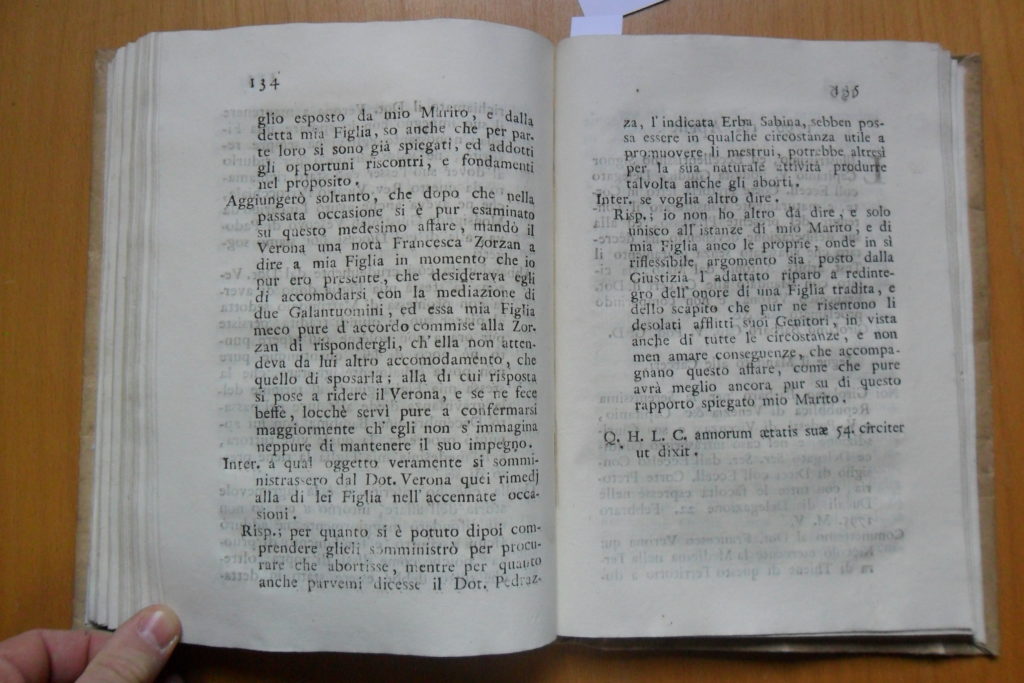 134
glio esposto da mio Marito, e dalla
detta mia Figlia, so anche che per par-
te loro si sono già spiegati, ed addotti
gli opportuni riscontri, e fondamenti
nel proposito.
Aggiungerò soltanto, che dopo che nella
passata occasione si è pur esaminato
su questo medesimo affare, mandò il
Verona una nota Francesca Zorzan a
dire a mia Figlia in momento che io
pur ero presente, che desiderava egli
di accomodarsi con la mediazione di
due Galantuomini, ed essa mia Figlia
meco pure d'accordo commise alla Zor-
zan di rispondergli, ch'ella non atten-
deva da lui altro accomodamento, che
quello di sposarla; alla di cui risposta
si pose a ridere il Verona, e se ne fece
beffe, locchè servì pure a confermarsi
maggiormente ch'egli non s'immagina
neppure di mantenere il suo impegno.
Inter. a qual oggetto veramente si sommi-
nistrassero dal Dot. Verona quei rimedj
alla di lei Figlia nell'accennate occa-
sioni.
Risp.; per quanto si è potuto dipoi com-
prendere glieli somministrò per procu-
rare che abortisse, mentre per quanto
anche parvemi dicesse il Dot. Pedraz-
135
za, l'indicata Erba Sabina, sebben pos-
sa essere in qualche circostanza utile a
promuovere li mestrui, potrebbe altresì
per la sua naturale attività produrre
talvolta anche gli aborti.
Inter. se voglia altro dire.
Risp.; io non ho altro da dire, e solo
unisco all'istanze di mio Marito, e di
mia Figlia anco le proprie, onde in sì
riflessibile argomento sia posto dalla
Giustizia l'adattato riparo a redinte-
gro dell'onore di una Figlia tradita, e
dello scapito che pur ne risentono li
desolati afflitti suoi Genitori, in vista
anche di tutte le circostanze, e non
men amare conseguenze, che accompa-
gnano questo affare, come che pure
avrà meglio ancora pur su di questo
rapporto spiegato mio Marito.
Q. H. L. C. annorum ætatis suæ 54. circiter
ut dixit.